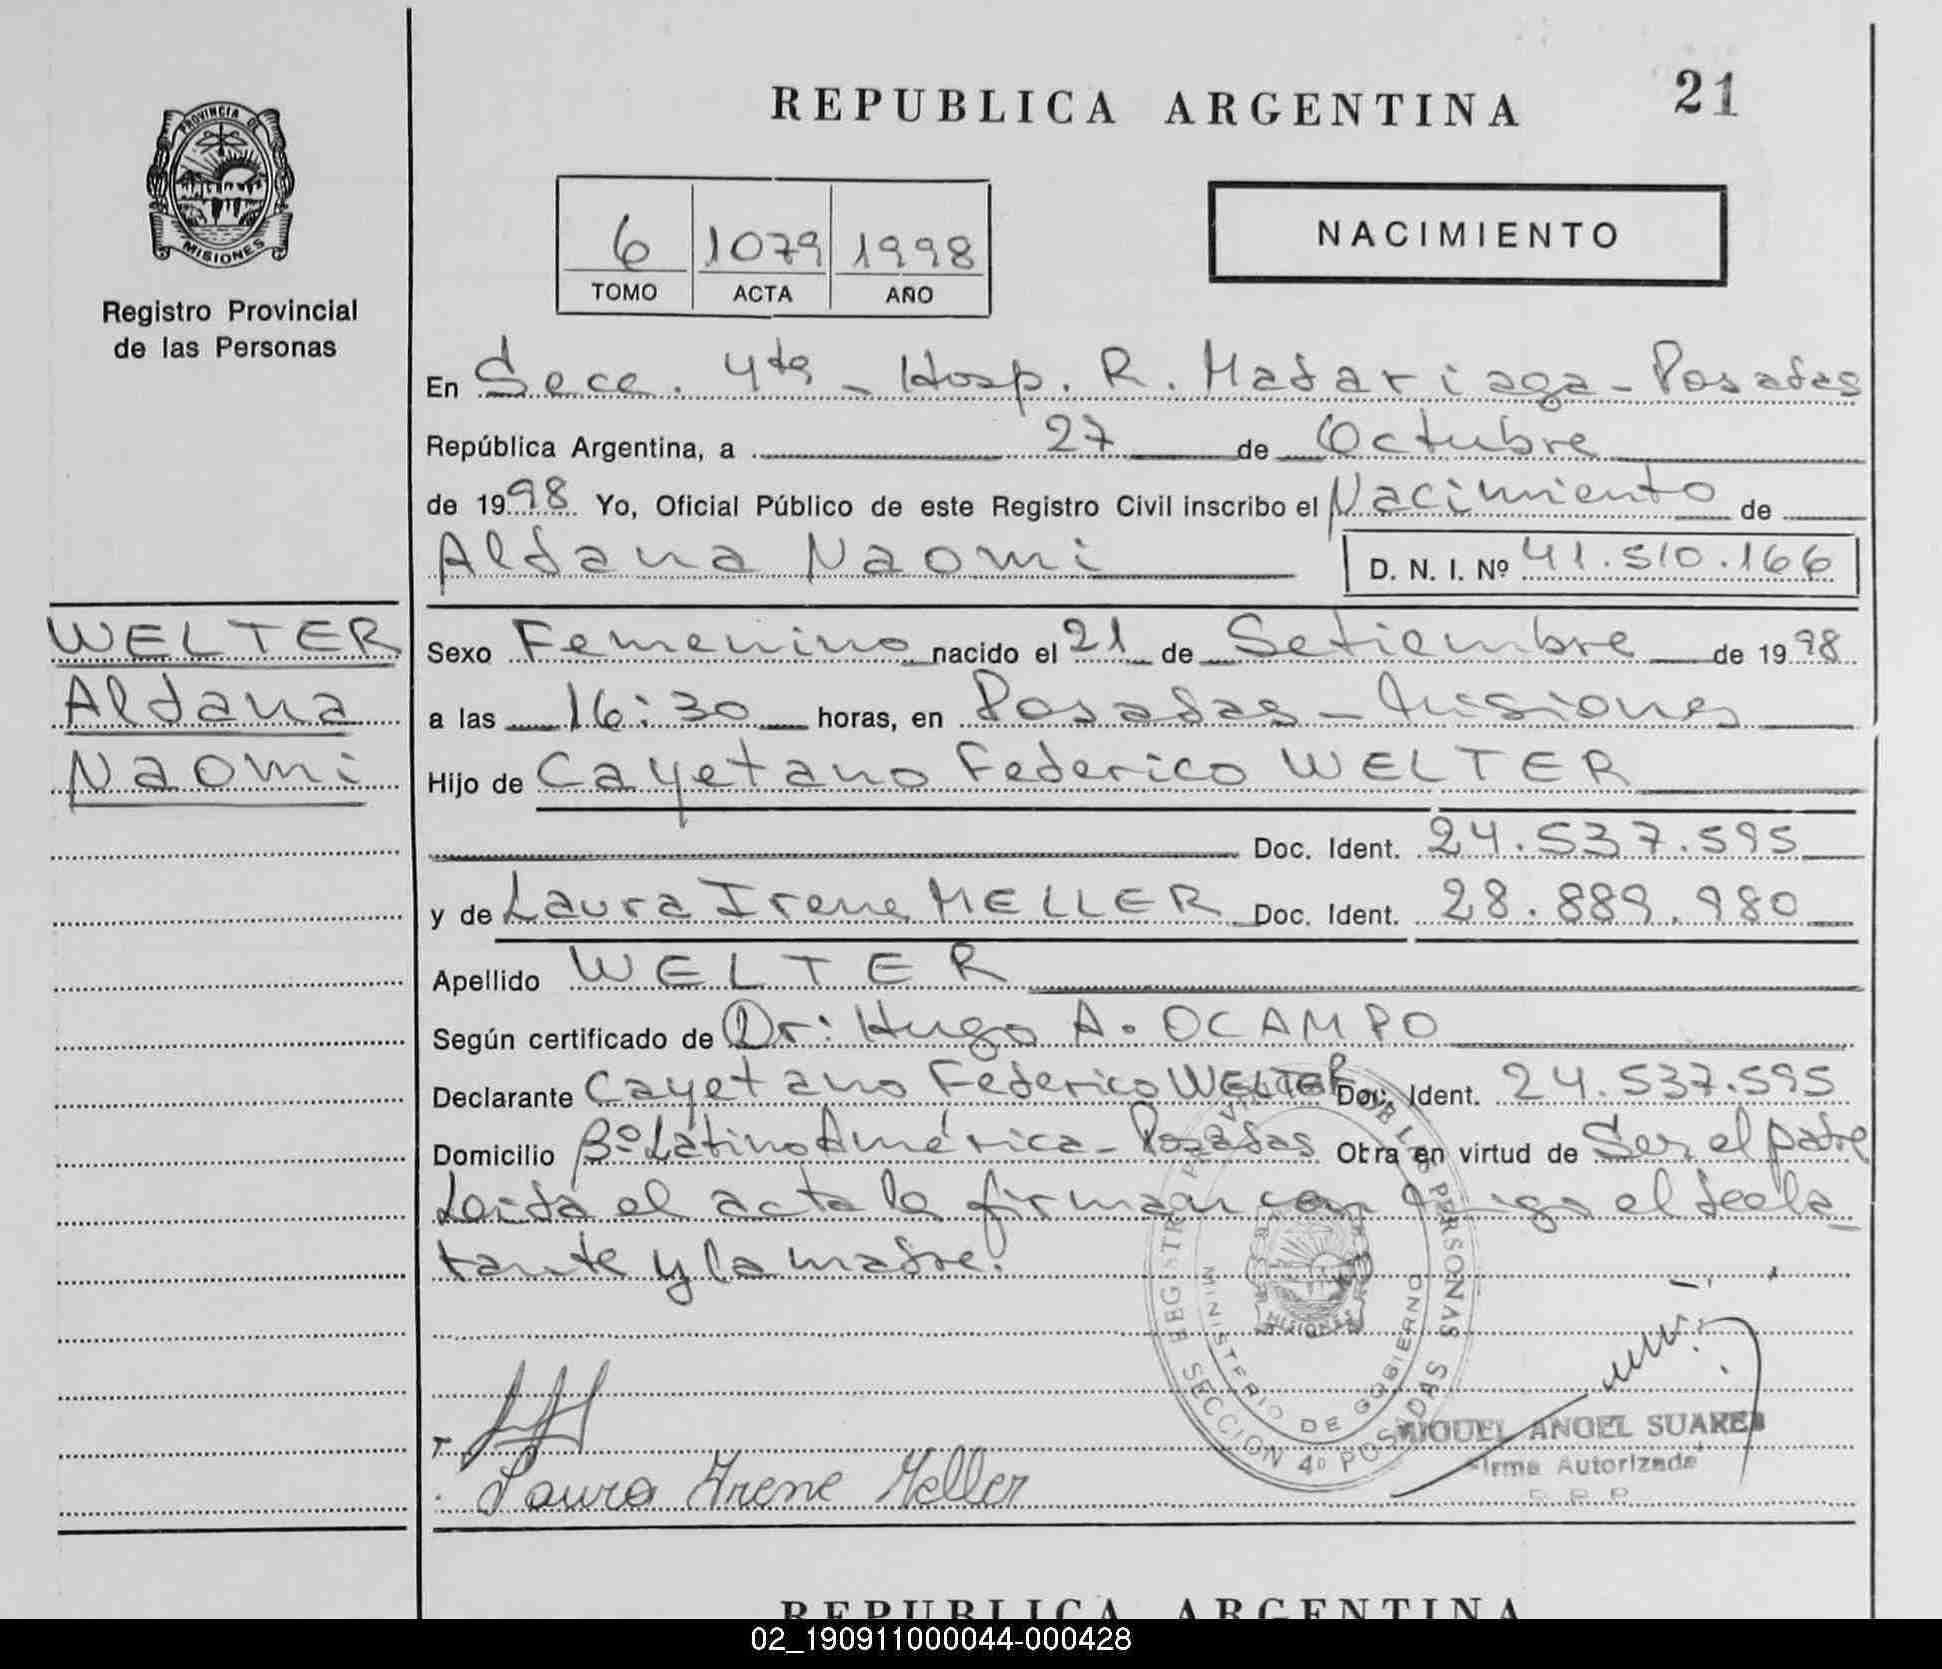 REPUBLICA ARGENTINA
21
PROVINCIA DE
MISIONES
Registro Provincial
de las Personas
NACIMIENTO
6 1079 1998
TOMO ACTA AÑO
En Secc. 4ta - Hosp. R. Madariaga - Posadas
República Argentina, a 27 de Octubre
de 1998 Yo, Oficial Público de este Registro Civil inscribo el Nacimiento de
Aldana Naomi D. N. I. Nº 41.510.166
WELTER
Aldana
Naomi
Sexo Femenino nacido el 21 de Setiembre de 1998
a las 16:30 horas, en Posadas - Misiones
Hijo de Cayetano Federico WELTER
Doc. Ident. 24.537.595
y de Laura Irene MELLER Doc. Ident. 28.889.980
Apellido WELTER
Según certificado de Dr: Hugo A. OCAMPO
Declarante Cayetano Federico WELTER Doc. Ident. 24.537.595
Domicilio Bº Látino América - Posadas Obra en virtud de Ser el padre
Leida el acta la firman con migo el decla
rante y la madre.
MINISTERIO DE GOBIERNO
SECCION 4º POSADAS
MISIONES
Laura Irene Meller
MIGUEL ANGEL SUAREZ
Firma Autorizada
REPUBLICA ARGENTINA
02_190911000044-000428